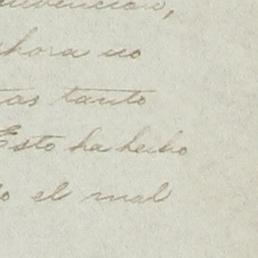 ahora no
tas tanto
Esto ha hecho
do el mal